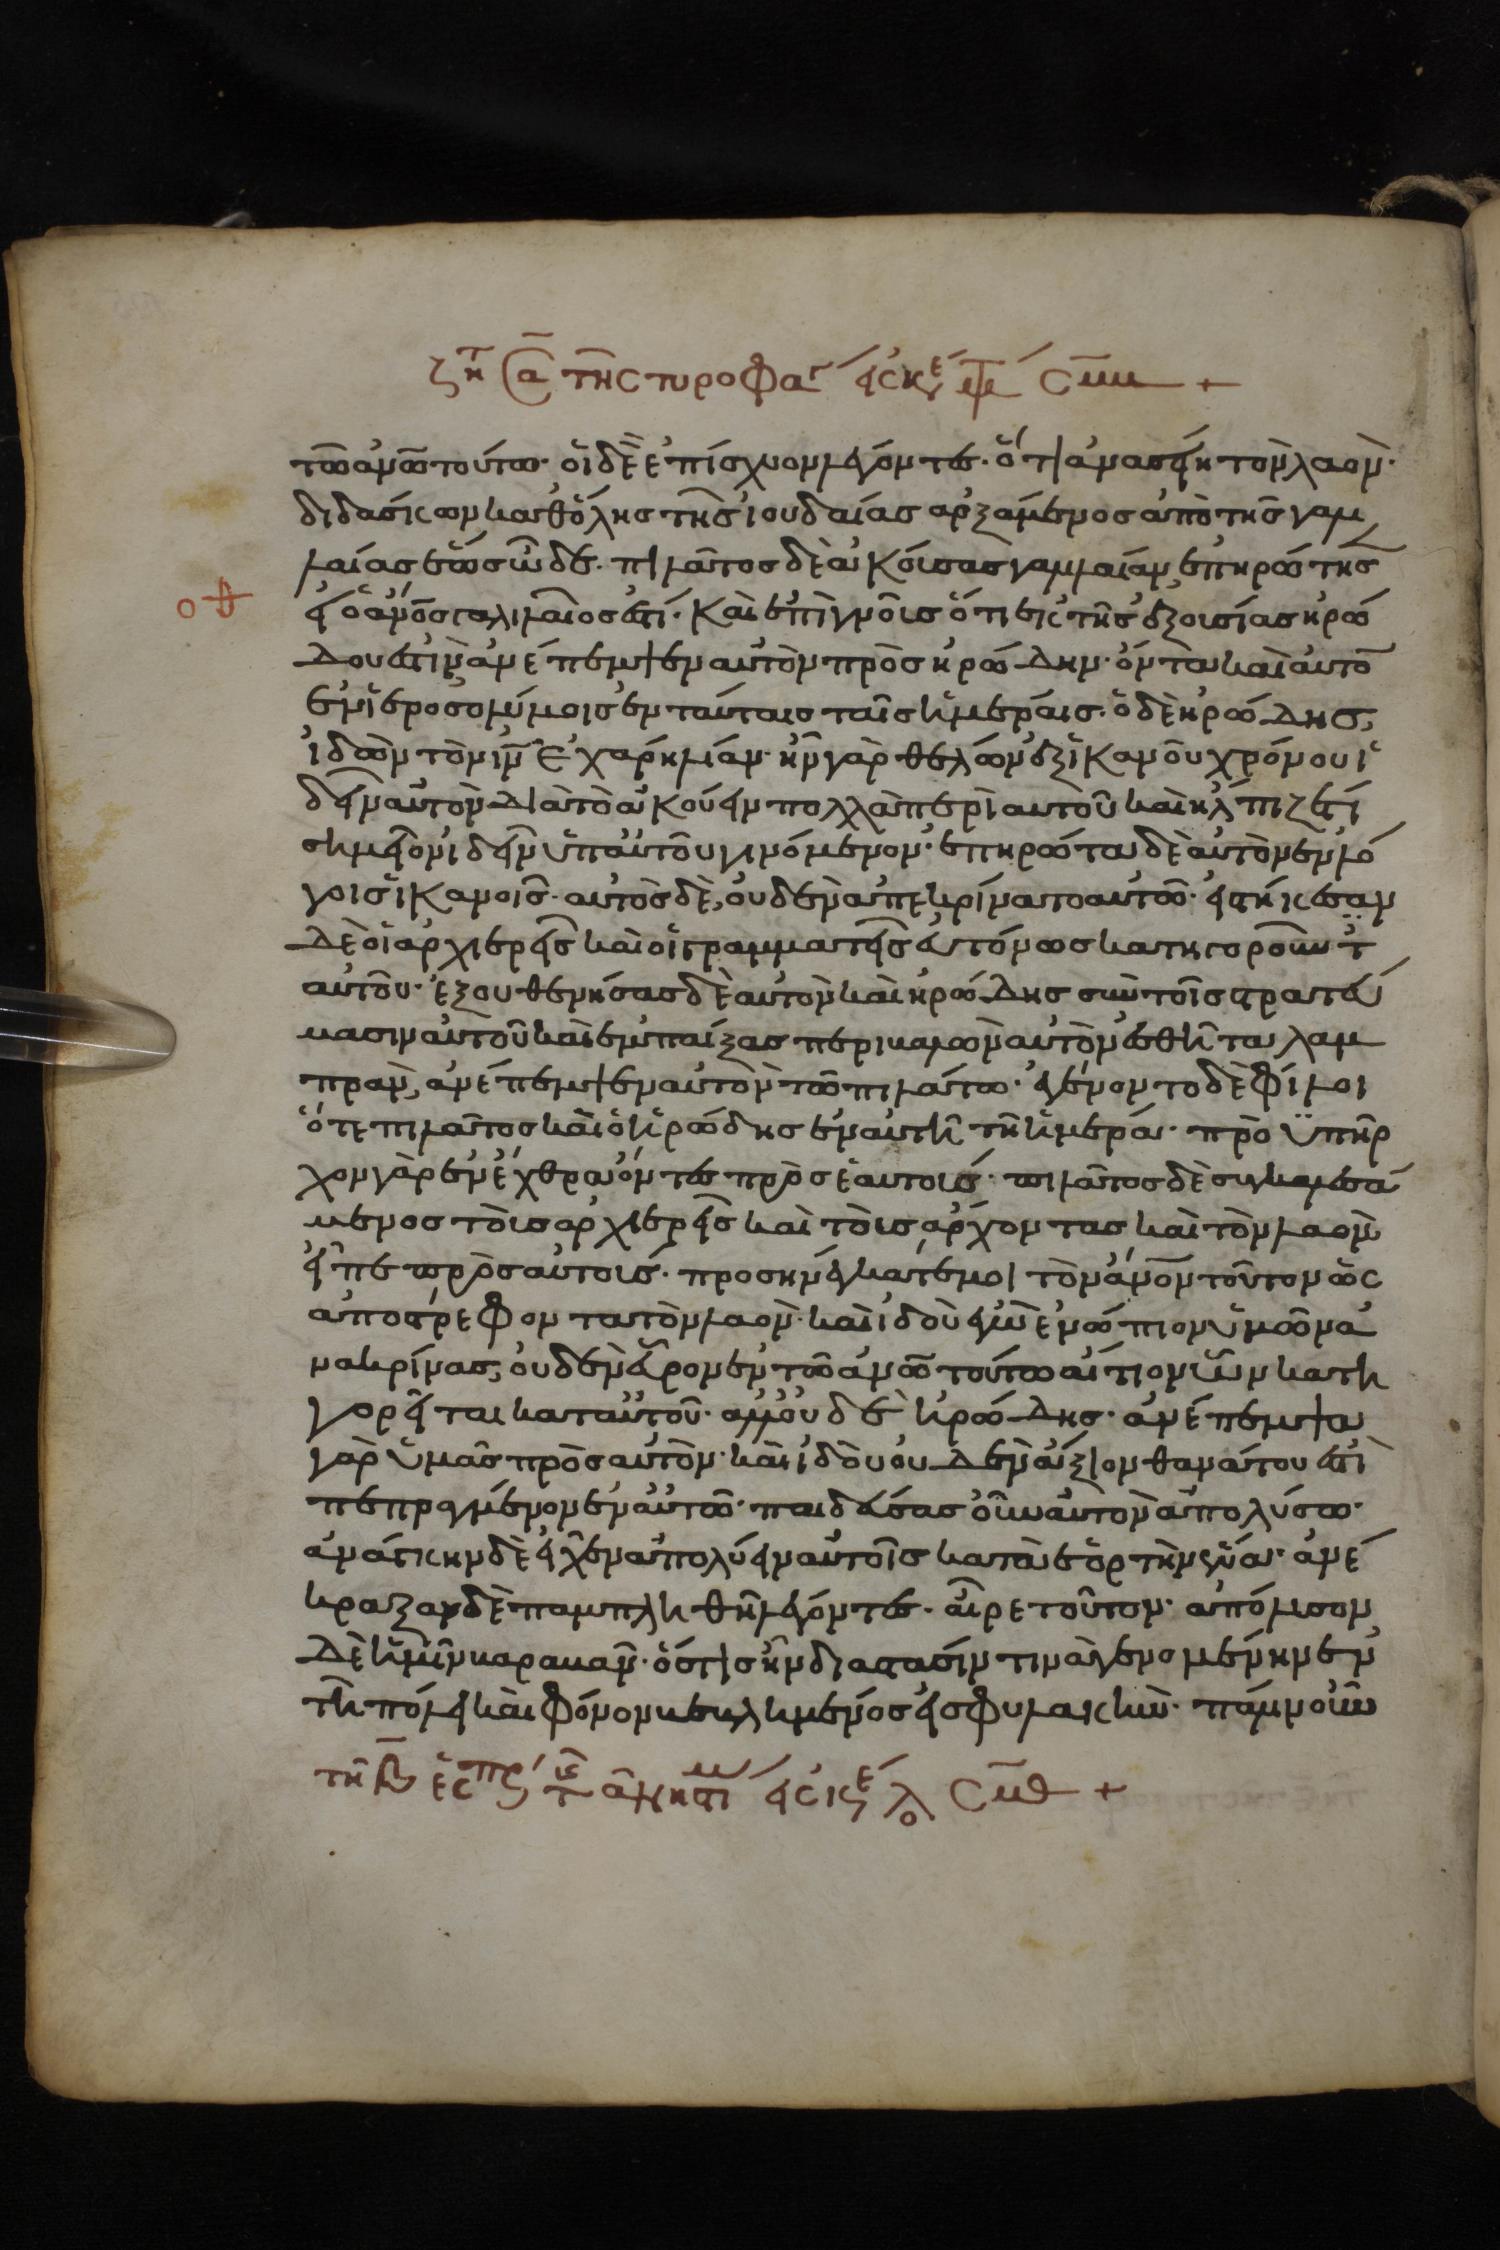 τῶ ἀνῶ τούτω· οἱ δὲ ἐπίσχυον λέγοντες· ὅτι ἀνασείει τὸν λαὸν·
διδάσκων καθ' ὅλης τῆς ἰουδαίας ἀρξάμενος ἀπὸ τῆς γαλι
λαίας ἕως ὧδε· πιλᾶτος δὲ ἀκούσας γαλιλαίαν ἐπηρώτησ
εἰ ὁ ἀνος γαλιλαῖός ἐστι· Καὶ ἐπιγνοὺς ὅτι ἐκ τῆς ἐξουσίας ἡρώ
δου ἐστὶν ἀνέπεμψεν αὐτὸν πρὸς ἡρώδην· ὄντα καὶ αὐτὸ
ἐν ἱεροσολύμοις ἐν ταύταις ταῖς ἡμέραις· ὁ δὲ ἡρώδης,
ἰδὼν τὸν ιν ἐχάρη λίαν· ἦν γὰρ θέλων ἐξ ἱκανοῦ χρόνου ἰ
δεῖν αὐτὸν διὰ τὸ ἀκούειν πολλὰ περὶ αὐτοῦ καὶ ἤλπιζέ τι
σημεῖον ἰδεῖν ὑπ' αὐτοῦ γινόμενον· ἐπηρώτα δὲ αὐτὸν ἐν λό
γοις ἱκανοῖς· αὐτὸς δὲ, οὐδὲν ἀπεκρίνατο αὐτῶ· εἱστήκεσαν
δὲ οἱ ἀρχιερεῖς καὶ οἱ γραμματεῖς εὐτόνως κατηγοροῦντ
αὐτοῦ· ἐξουθενήσας δὲ αὐτὸν καὶ ἡρώδης σὺν τοῖς στρατεύ
μασιν αὐτοῦ καὶ ἐμπαίξας περιβαλὼν αὐτὸν ἐσθῆτα λαμ
πρὰν, ἀνέπεμψεν αὐτὸν τῶ πιλάτω· ἐγένοντο δὲ φίλοι
ὅ τε πιλᾶτος καὶ ὁ ἡρώδης ἐν αὐτῆ τῆ ἡμέρα· πρὸ ϋπῆρ
χον γὰρ ἐν ἔχθρα ὄντες πρὸς ἑαυτούς· πιλᾶτος δὲ συγκαλεσά
μενος τοὺς ἀρχιερεῖς καὶ τοὺς ἄρχοντας καὶ τὸν λαὸν
εἶπε πρὸς αὐτούς· προσηνέγκατέ μοι τὸν ἀνον τοῦτον ὡς
ἀποστρέφοντα τὸν λαὸν· καὶ ἰδοὺ ἐγὼ ἐνώπιον ὑμῶν ἀ
νακρίνας, οὐδὲν εὗρον ἐν τῶ ἀνω τούτω αἴτιον ὧν κατη
γορεῖται κατ' αὐτοῦ· ἀλλ' οὐδὲ ἡρώδης· ἀνέπεμψα
γὰρ ὑμᾶς πρὸς αὐτὸν· καὶ ἰδοὺ οὐδὲν ἄξιον θανάτου ἐστὶ
πεπραγμένον ἐν αὐτῶ· παιδεύσας οὖν αὐτὸν ἀπολύσω·
ἀνάγκην δὲ εἶχεν ἀπολύειν αὐτοῖς κατὰ ἑορτὴν ἕνα· ἀνέ
κραξαν δὲ παμπληθεῖ λέγοντες· αἶρε τοῦτον· ἀπόλυσον
δὲ ἡμῖν βαραββᾶν· ὅστις ἦν διὰ στάσιν τινὰ γενομένην ἐν
τῆ πόλει καὶ φόνον βεβλημένος εἰς φυλακὴν· πάλιν οὖν